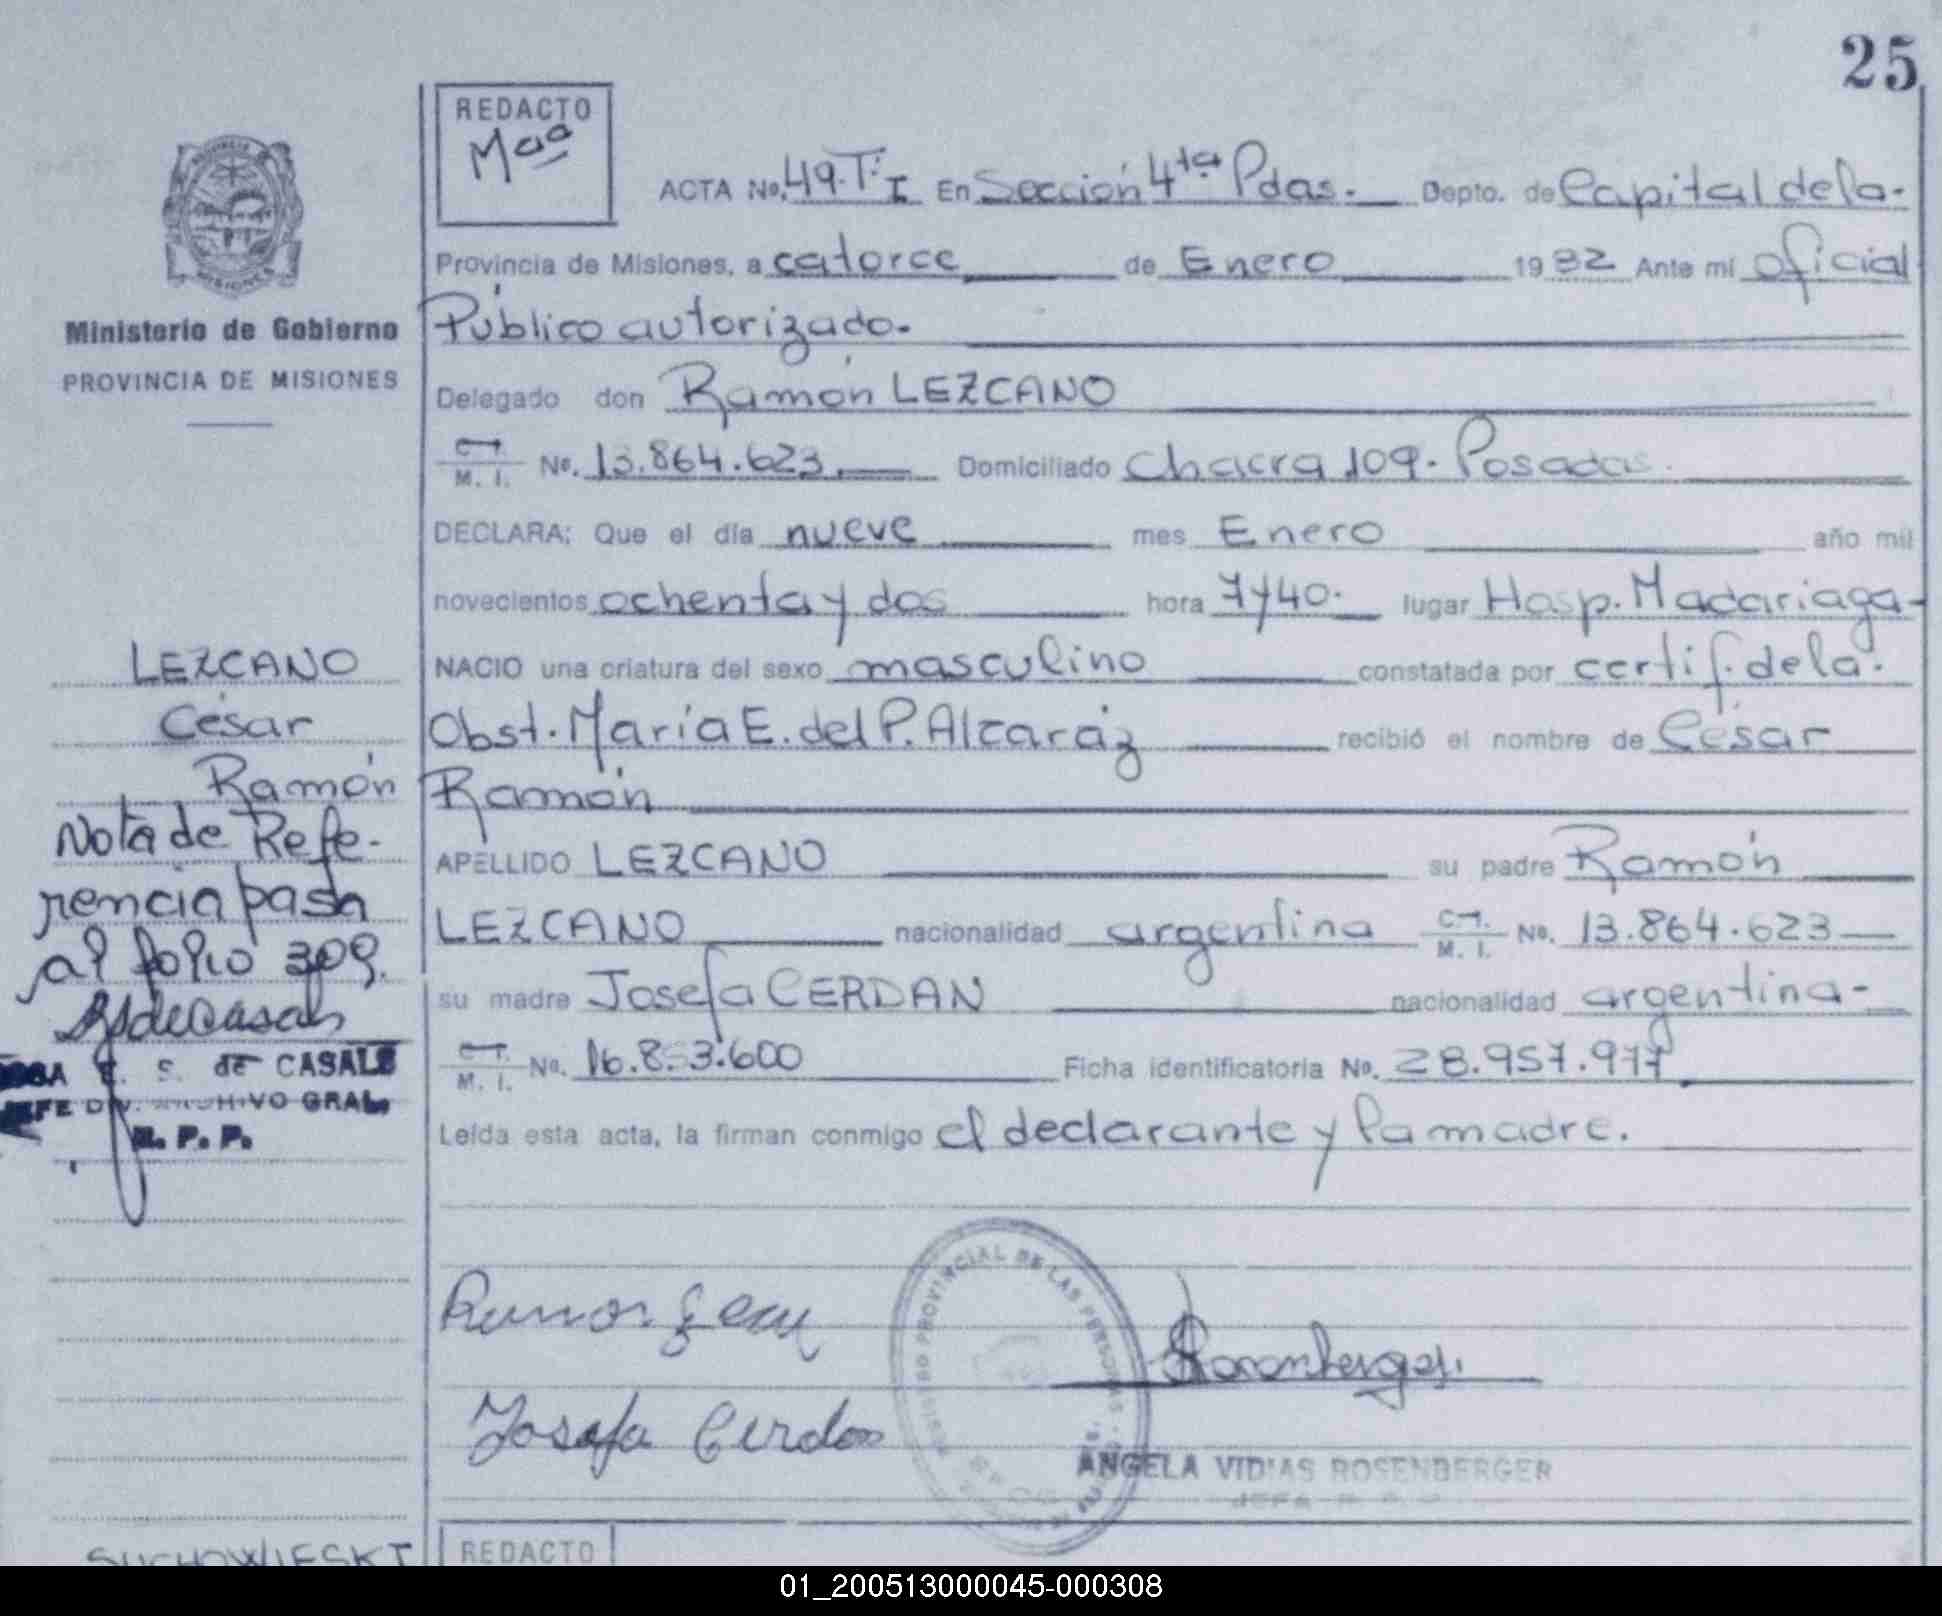 25
REDACTO
Maa
ACTA No. 49. Tº I En Sección 4ta Pdas. Depto. de Capital de la
Provincia de Misiones, a catorce de Enero 1982 Ante mi oficial
Público autorizado.
Delegado don Ramón LEZCANO
C.I. M. I. No. 13.864.623 Domiciliado Chacra 109. Posadas.
DECLARA; Que el día nueve mes Enero año mil
novecientos ochenta y dos hora 7 y 40. lugar Hosp. Madariaga-
NACIO una criatura del sexo masculino constatada por certif. de la
Obst. María E. del P. Alcaráz recibió el nombre de César
Ramón
APELLIDO LEZCANO su padre Ramón
LEZCANO nacionalidad argentina C.I. M. I. No. 13.864.623
su madre Josefa CERDAN nacionalidad argentina-
C.I. M. I. No. 16.853.600 Ficha identificatoria No. 28.957.977
Leída esta acta, la firman conmigo el declarante y la madre.
MISIONES
Ministerio de Gobierno
PROVINCIA DE MISIONES
LEZCANO
César
Ramón
Nota de Refe-
rencia pasa
al folio 309.
de CASALS
JEFE DIV. ARCHIVO GRAL.
R. P. P.
REGISTRO PROVINCIAL DE LAS PERSONAS
Josefa Cerdan
Rosenberger
ANGELA VIDIAS ROSENBERGER
JEFA
SUCHOWIESKI
REDACTO
01_200513000045-000308